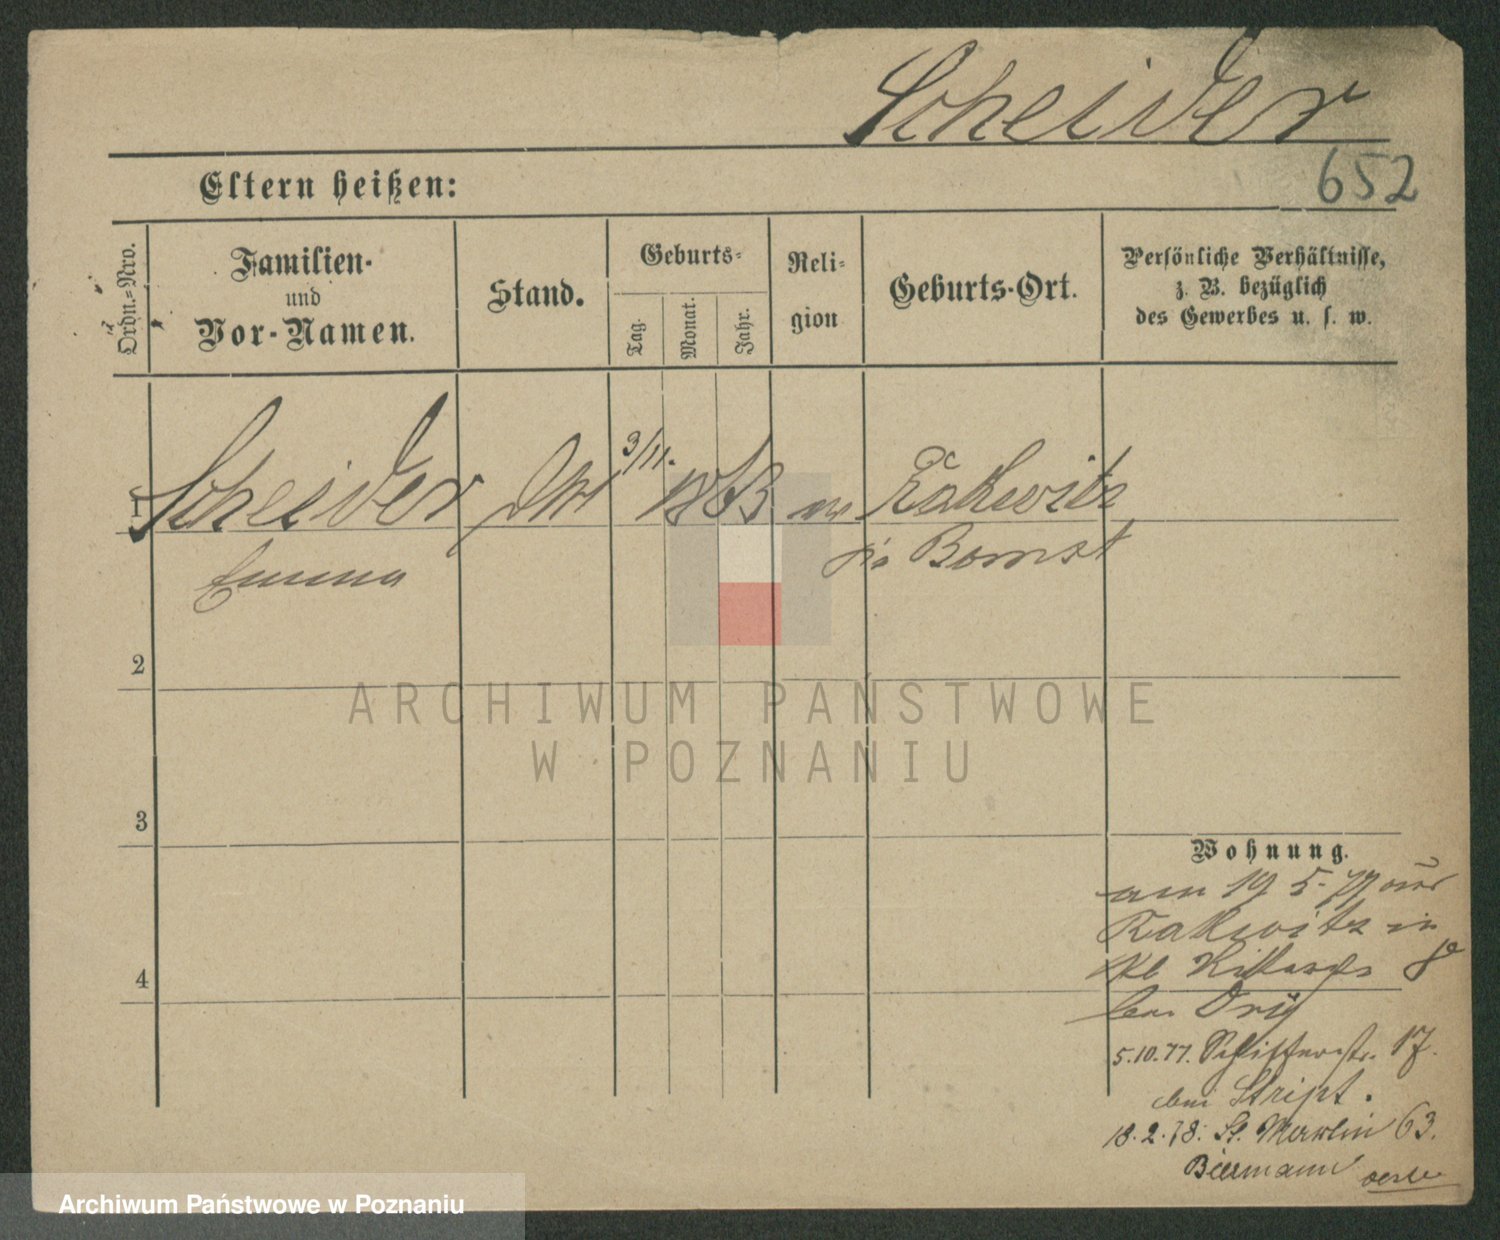 Scheider
652
Eltern heißen:
Ordn.-Nro.
Familien-
und
Vor-Namen.
Stand.
Geburts-
Tag.
Monat.
Jahr.
Reli-
gion
Geburts-Ort.
Persönliche Verhältnisse,
z. B. bezüglich
des Gewerbes u. s. w.
1 Scheider 3/11. Rakwitz
Emma Bomst
2
ARCHIWUM PAŃSTWOWE
W POZNANIU
3
Wohnung.
am 19 5. 77 aus
Rakwitz in
4
8
bei
5.10.77. 17.
bei Stript.
18.2.78. St. Martin 63.
Biermann
Archiwum Państwowe w Poznaniu